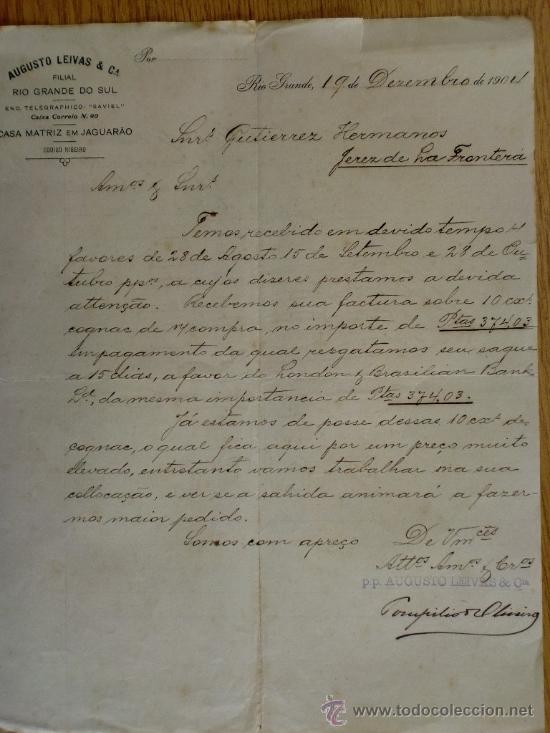 AUGUSTO LEIVAS & Cᵃ
FILIAL
RIO GRANDE DO SUL
END. TELEGRAPHICO: "SAVIEL"
Caixa Correio N. 90
CASA MATRIZ EM JAGUARÃO
CODIGO RIBEIRO
Por
Rio Grande, 19 de Dezembro de 1904
Snrˢ Gutierrez Hermanos
Jerez de La Fronterá
Amᵒˢ & Snrˢ
Temos recebido em devido tempo
favores de 28 de Agosto 15 de Setembro e 28 de Ou-
tubro ppᵒˢ, a cujos dizeres prestamos a devida
attenção. Recebemos sua factura sobre 10 cxˢ
cognac de n/compra, no importe de Ptas 374.03
em pagamento da qual resgatamos seu saque
a 15 dias, a favor do London & Brasilian Bank
Lᵈ, da mesma importancia de Ptas 374.03.
Já estamos de posse dessas 10 cxˢ de
cognac, o qual fica aqui por um preço muito
elevado, entretanto vamos trabalhar na sua
collocação, e ver se a sahida animará a fazer-
mos maior pedido.
Somos com apreço De Vmᶜᵉˢ
Attᵒˢ Amᵒˢ & Crᵒˢ
p.p. AUGUSTO LEIVAS & Cia
Pompilio d'Oliveira
http://www.todocoleccion.net